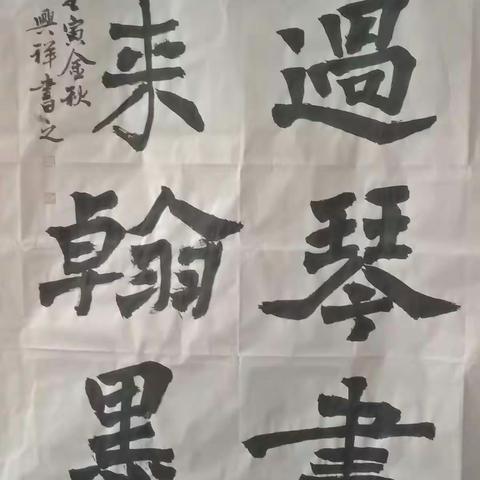 過琴書
来翰墨
壬寅金秋
興祥書之